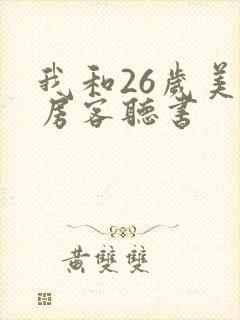 我和26歲美
房客聽書
黃雙雙